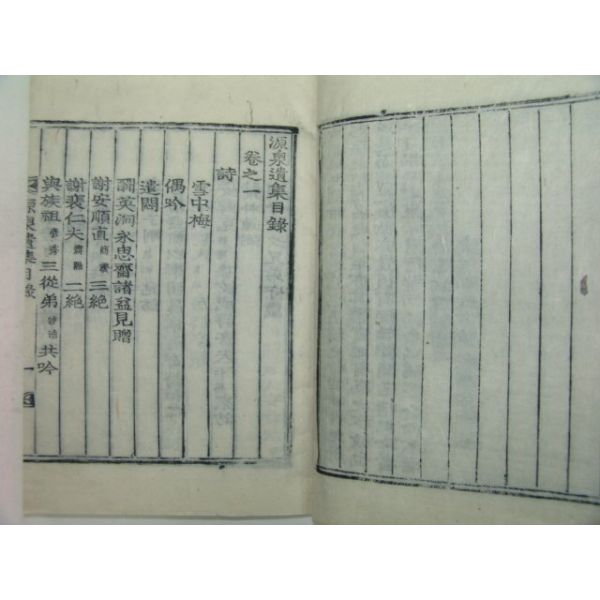 源泉遺集目錄
卷之一
詩
雪中梅
偶吟
遣悶
謝英洞永思齋諸益見贈
謝安順直 三絶
謝裵仁夫 二絶
與族祖 三從弟 共吟
源泉遺集目錄 一